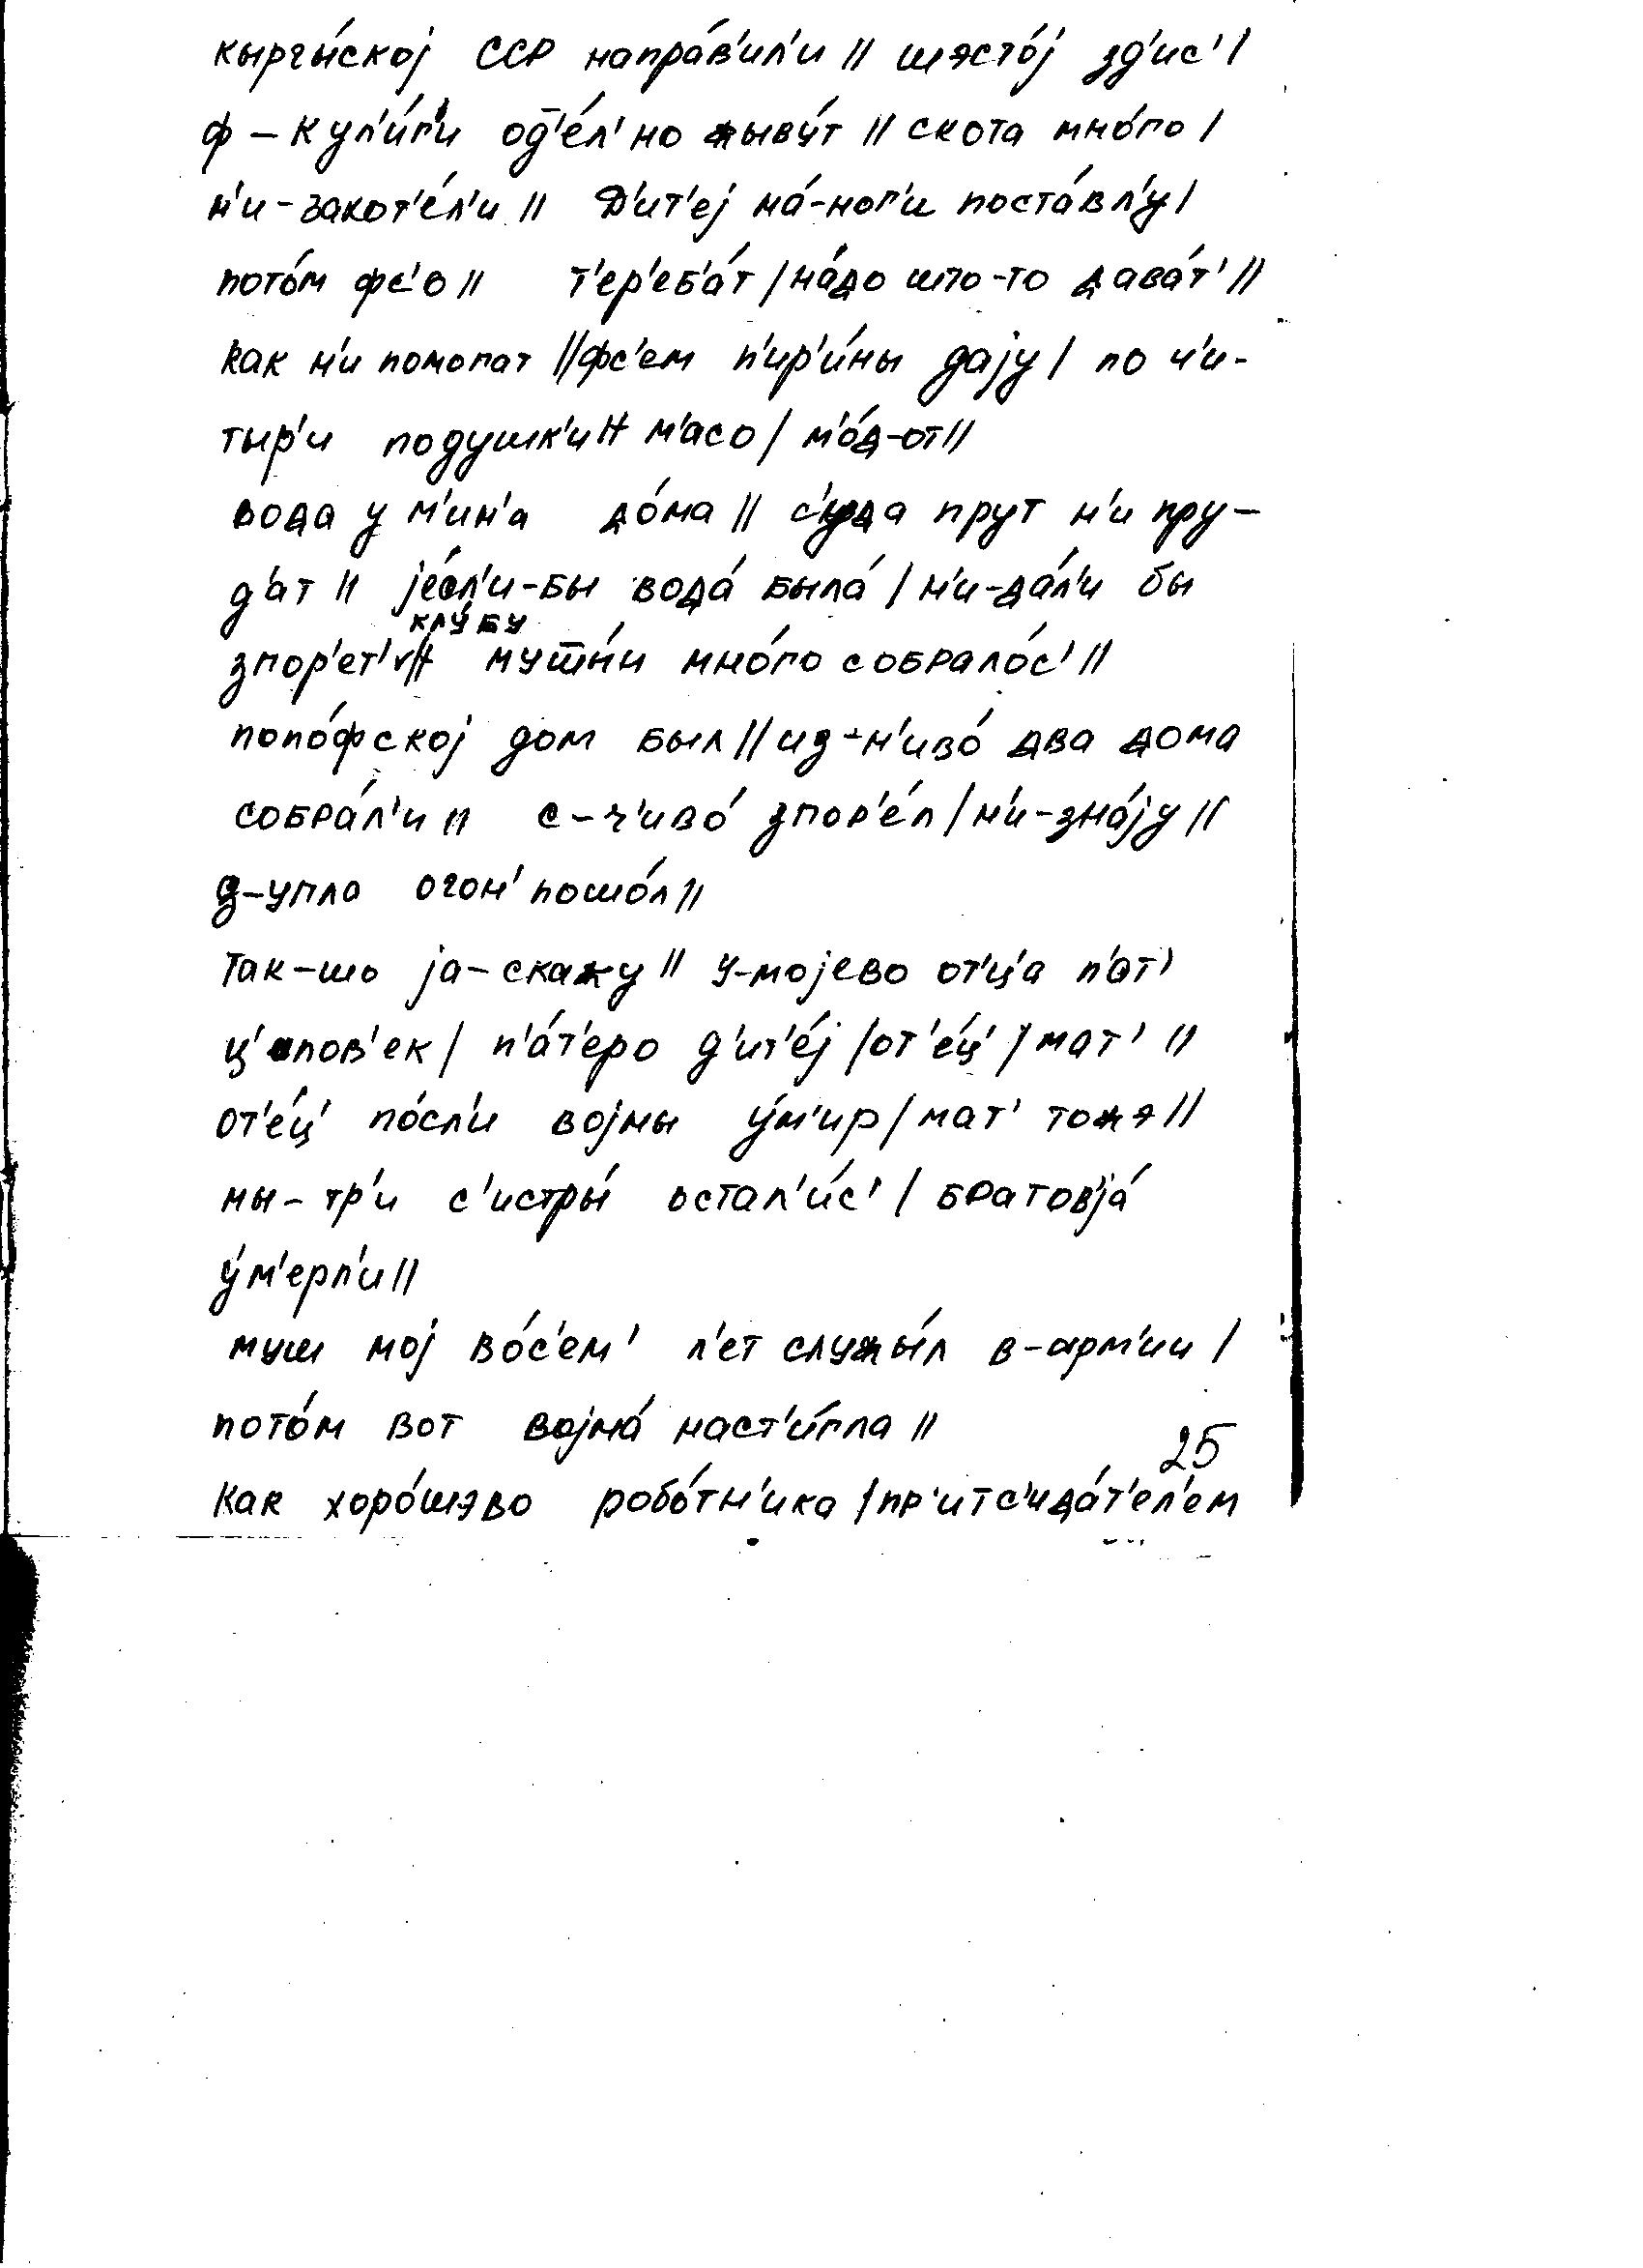 кыргы́ској ССР напра́в'ил'и // шэсто́ј зд'ис' /
ф – кул'и́г'и од̅'е́л'но жыву́т // скота мно́го /
н'и-захот'е́л'и // Д'ит'еј на́-ног'и поста́вл'у /
пото́м фс'о // т'ер'еб'а́т / на́до што-то дава́т' //
как н'и помогат // фс'ем п'ир'и́ны дају / по ч'и-
тыр'и подушк'и // м'асо / м'о́д-от //
вода у м'ин'а до́ма // с'уда прут н'и пру-
д'ат // је́сл'и-бы вода́ была́ / н'и-да́л'и бы
клу́бу
згор'ет' v // мут̅ы́и мно́го собрало́с' //
попо́фској дом был // из-н'иво́ два дома
собра́л'и // с-ч'иво́ згор'е́л / н'и-зна́ју //
з-угла огон' пошо́л //
Так-шо ја-скажу // у-мојево от'ц'а п'ат'
ц'еловек / п'а́т'еро д'ит'е́ј / от'е́ц' / мат' //
от'е́ц' по́сл'и војны у́м'ир / мат' тожэ //
мы-тр'и с'истры́ остал'и́с' / братов'ја́
у́м'ерл'и //
муш мој во́с'ем' л'ет служы́л в-арм'ии /
пото́м вот војна́ наст'и́гла //
25
Как хоро́шэво робо́тн'ика / пр'итс'ида́т'ел'ем